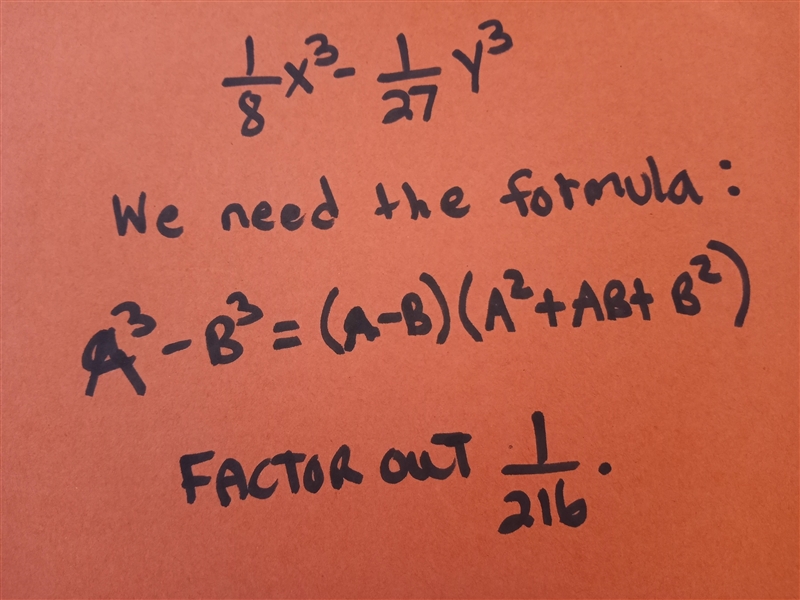 1/8 x³ - 1/27 y³
We need the formula:
A³ - B³ = (A-B)(A² + AB + B²)
FACTOR OUT 1/216.